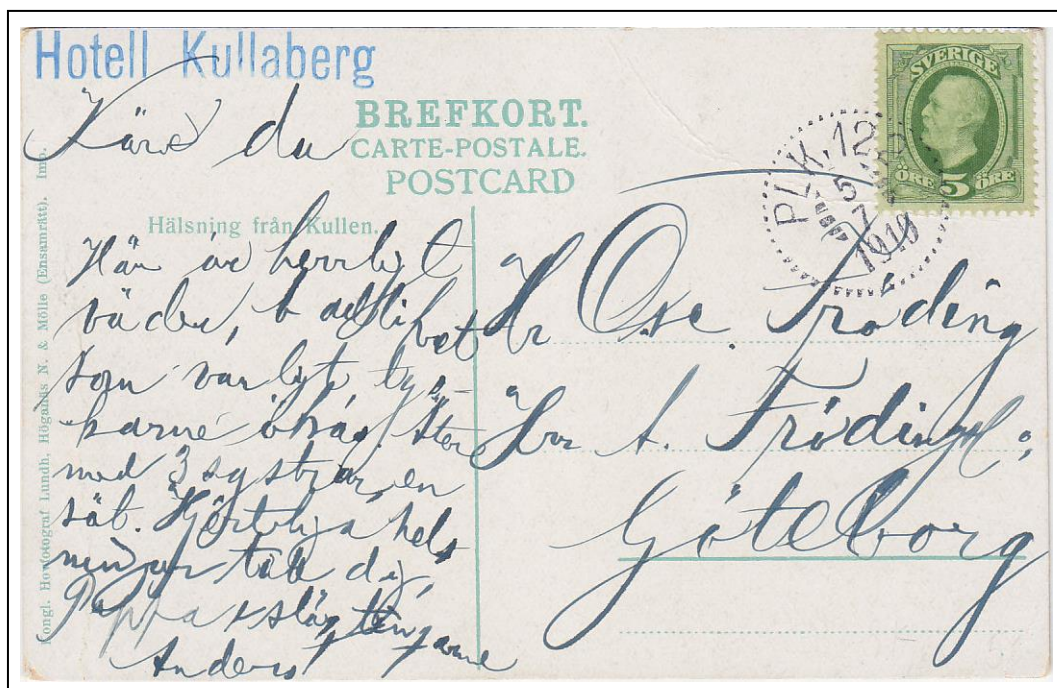 Hotell Kullaberg
Käre du
BREFKORT.
CARTE-POSTALE.
POSTCARD
Hälsning från Kullen.
Här är herrligt
väder,
som
med 3 systrar, en
säb. Hjärtliga hels
ningar till dig,
Pappa & släktingarne
Anders
SVERIGE
ÖRE 5 ÖRE
PLK. 12
5
7
1910
Hr Osc. Fröding
Hrr A. Fröding
Göteborg
Kongl. Hoffotograf Lundh, Höganäs N. & Mölle (Ensamrätt). Imp.